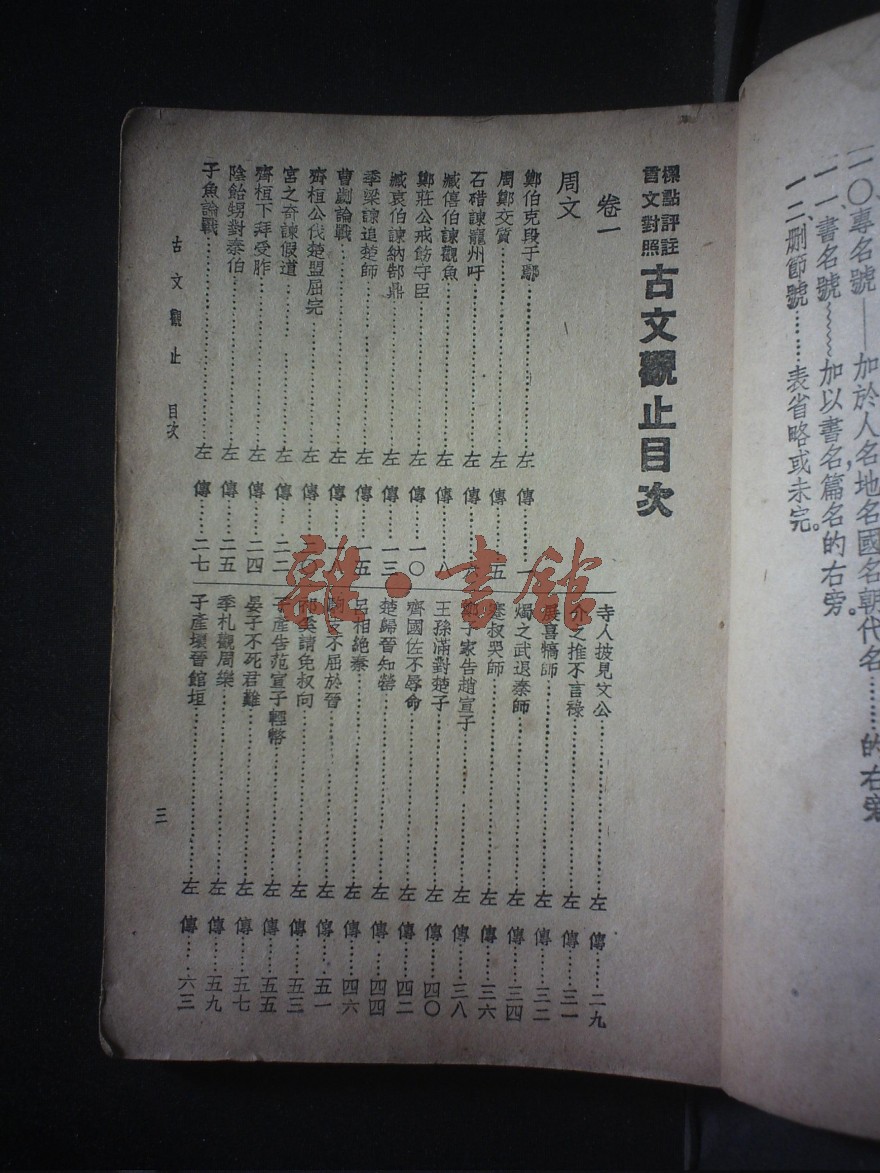 一〇、專名號——加於人名地名國名朝代名………的右旁
一一、書名號﹏﹏﹏加以書名篇名的右旁。
一二、刪節號……表省略或未完。
標點評註
言文對照
古文觀止目次
卷一
周文
鄭伯克段于鄢……左傳……一
周鄭交質……左傳……五
石碏諫寵州吁……左傳……
臧僖伯諫觀魚……左傳……八
鄭莊公戒飭守臣……左傳……一〇
臧哀伯諫納郜鼎……左傳……一三
季梁諫追楚師……左傳……一五
曹劌論戰……左傳……一八
齊桓公伐楚盟屈完……左傳……二〇
宮之奇諫假道……左傳……二二
齊桓下拜受胙……左傳……二四
陰飴甥對秦伯……左傳……二五
子魚論戰……左傳……二七
寺人披見文公……左傳……二九
介之推不言祿……左傳……三一
展喜犒師……左傳……三二
燭之武退秦師……左傳……三四
蹇叔哭師……左傳……三六
鄭子家告趙宣子……左傳……三八
王孫滿對楚子……左傳……四〇
齊國佐不辱命……左傳……四二
楚歸晉知罃……左傳……四四
呂相絕秦……左傳……四六
駒支不屈於晉……左傳……五一
祁奚請免叔向……左傳……五三
子產告范宣子輕幣……左傳……五五
晏子不死君難……左傳……五七
季札觀周樂……左傳……五九
子產壞晉館垣……左傳……六三
古文觀止 目次
三
雜·書館